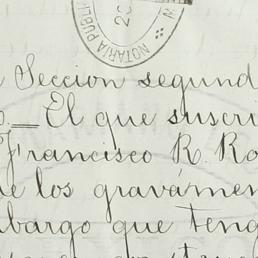 NOTARIA PUBLI
Seccion segund
El que suscri
Francisco R. Ro
e los gravámen
bargo que teng